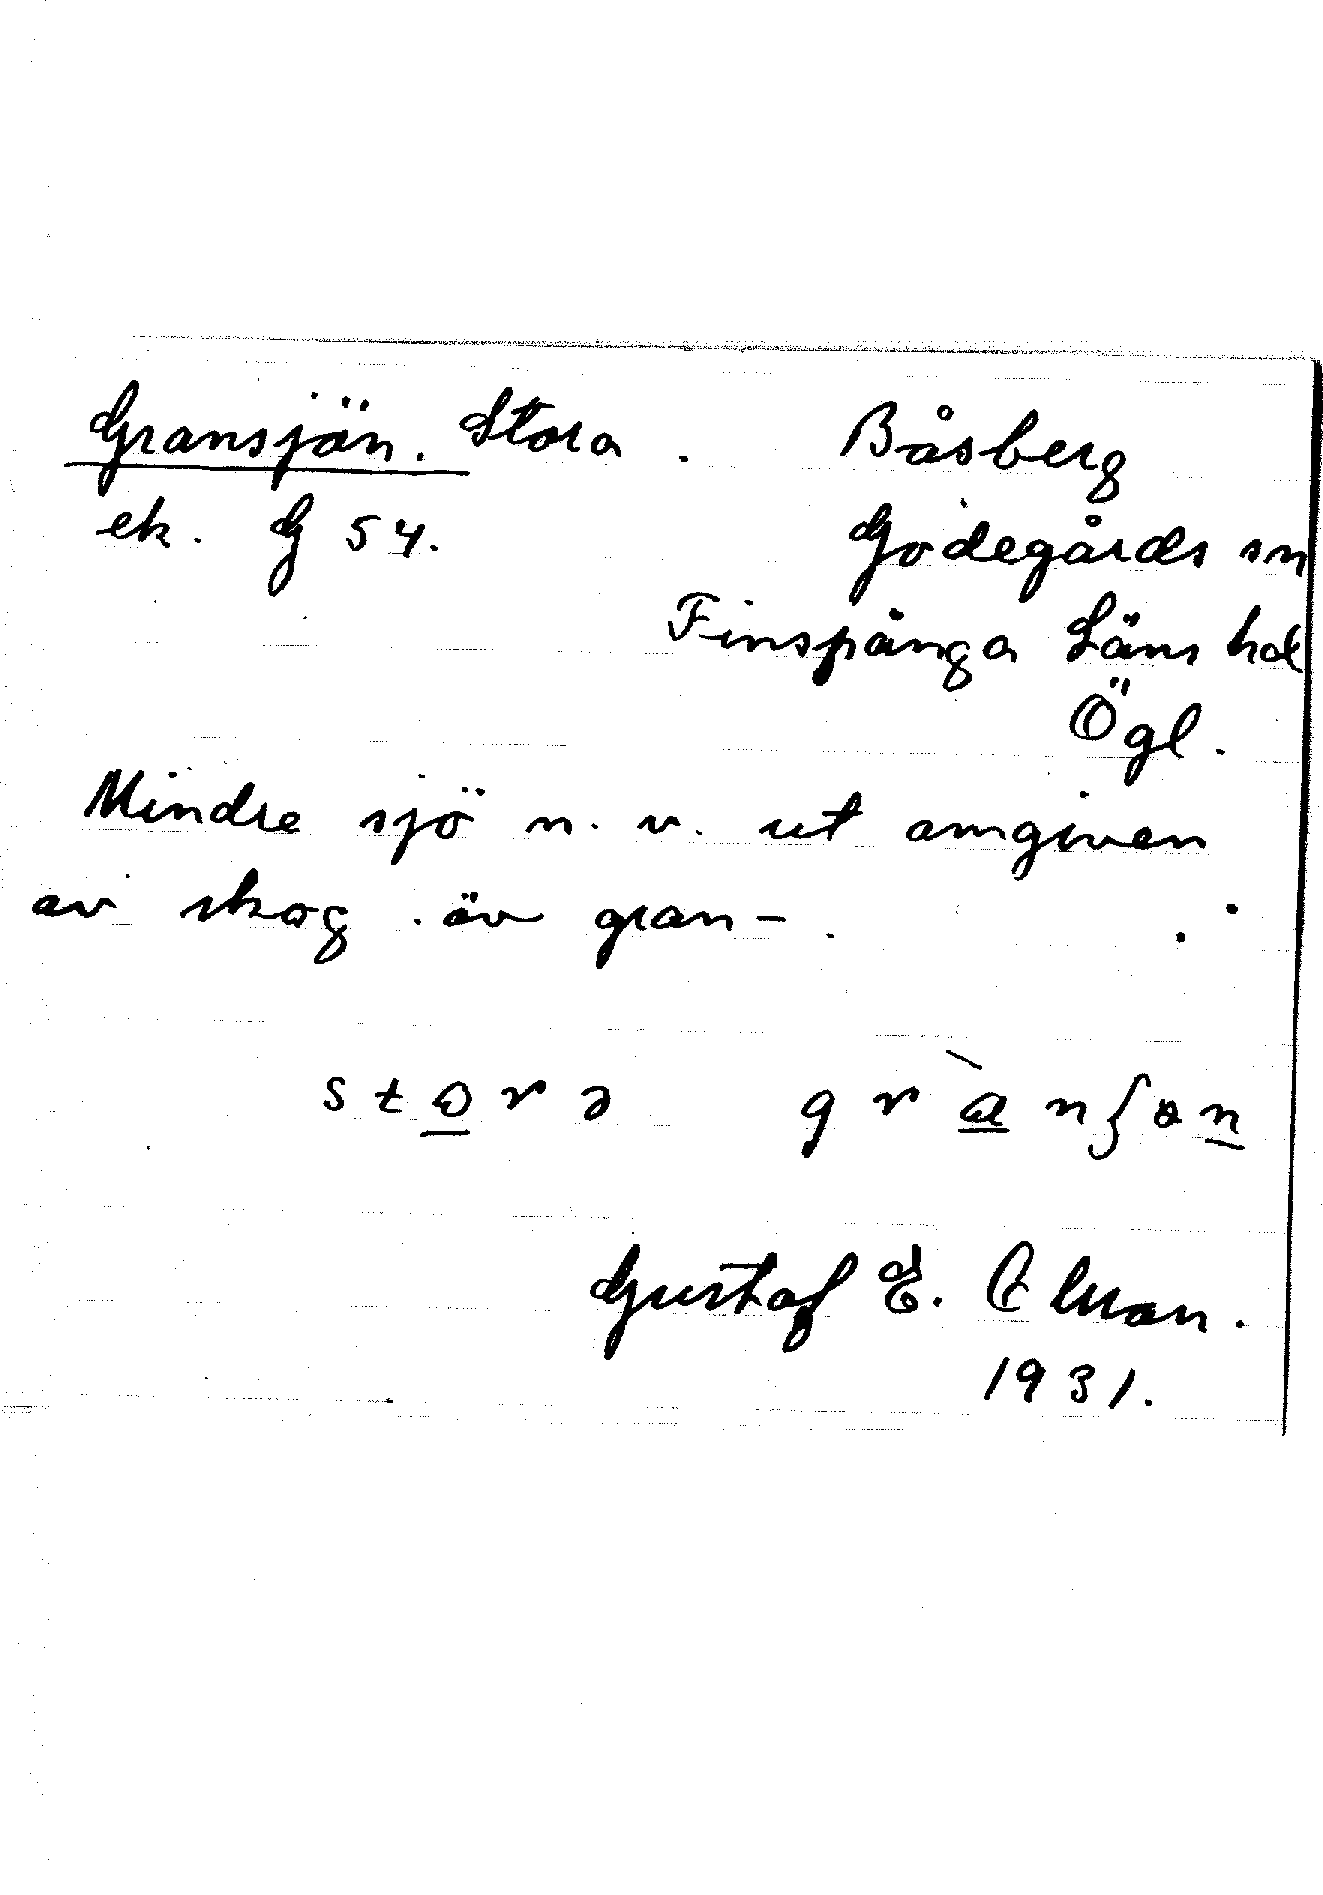 Gransjön. Stora . Båsberg
ek. G 54. Godegårds sn
Finspånga Läns hd
Ögl.
Mindre sjö n. v. ut omgiven
av skog . äv gran -
Gustaf E.
1931.